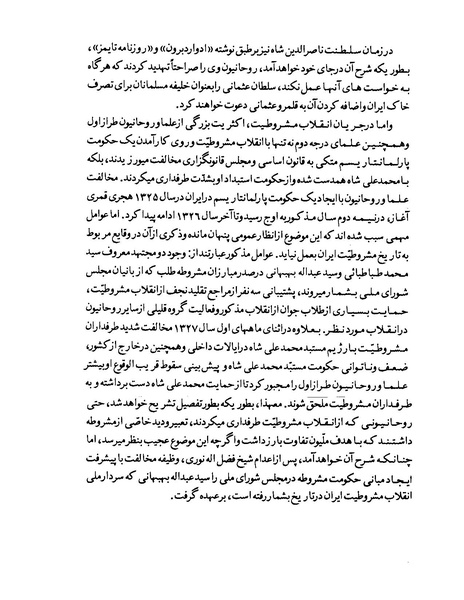 درزمان سلطنت ناصرالدین شاه نیز برطبق نوشته «ادوارد برون» و «روزنامه تایمز»،
بطوریکه شرح آن درجای خود خواهدآمد، روحانیون وی را صراحتاً تهدید کردند که هرگاه
به خواست های آنها عمل نکند، سلطان عثمانی رابعنوان خلیفه مسلمانان برای تصرف
خاک ایران واضافه کردن آن به قلمرو عثمانی دعوت خواهند کرد.
واما درجریان انقلاب مشروطیت، اکثریت بزرگی ازعلما وروحانیون طراز اول
وهمچنین علمای درجه دوم نه تنها با انقلاب مشروطیت و روی کارآمدن یک حکومت
پارلمانتاریسم متکی به قانون اساسی ومجلس قانونگزاری مخالفت میورزیدند، بلکه
بامحمدعلی شاه همدست شده وازحکومت استبداد او بشدت طرفداری میکردند. مخالفت
علما وروحانیون با ایجاد یک حکومت پارلمانتاریسم درایران درسال ۱۳۲۵ هجری قمری
آغاز، درنیمه دوم سال مذکور به اوج رسید وتاآخرسال ۱۳۲۶ ادامه پیدا کرد. اما عوامل
مهمی سبب شده اند که این موضوع ازانظارعمومی پنهان مانده وذکری ازآن در وقایع مربوط
به تاریخ مشروطیت ایران بعمل نیاید. عوامل مذکورعبارتند از: وجود دو مجتهد معروف سید
محمد طباطبائی وسید عبداله بهبهانی درصدرمبارزان مشروطه طلب که ازبانیان مجلس
شورای ملی بشمار میروند، پشتیبانی سه نفرازمراجع تقلید نجف ازانقلاب مشروطیت،
حمایت بسیاری ازطلاب جوان ازانقلاب مذکور وفعالیت گروه قلیلی ازسایر روحانیون
درانقلاب موردنظر. بعلاوه دراثنای ماههای اول سال ۱۳۲۷ مخالفت شدید طرفداران
مشروطیت با رژیم مستبد محمدعلی شاه درایالات داخلی وهمچنین درخارج ازکشور،
ضعف وناتوانی حکومت مستبد محمدعلی شاه و پیش بینی سقوط قریب الوقوع او بیشتر
علما وروحانیون طرازاول را مجبور کرد تا ازحمایت محمدعلی شاه دست برداشته و به
طرفداران مشروطیت ملحق شوند. معهذا، بطوریکه بطورتفصیل تشریح خواهد شد، حتی
روحانیونی که ازانقلاب مشروطیت طرفداری میکردند، تعبیر ودید خاصی ازمشروطه
داشتند که با هدف ملیون تفاوت بارز داشت واگرچه این موضوع عجیب بنظر میرسد، اما
چنانکه شرح آن خواهدآمد، پس ازاعدام شیخ فضل اله نوری، وظیفه مخالفت با پیشرفت
ایجاد مبانی حکومت مشروطه درمجلس شورای ملی را سید عبداله بهبهانی که سردارملی
انقلاب مشروطیت ایران درتاریخ بشماررفته است، برعهده گرفت.